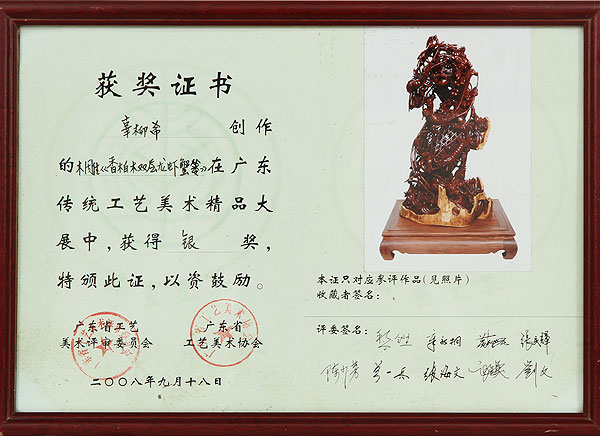 获奖证书
辜柳希 创作
的木雕《香柏木双层龙虾蟹篓》在广东
传统工艺美术精品大
展中，获得 银 奖，
特颁此证，以资鼓励。
广东省工艺
美术评审委员会
广东省
工艺美术协会
二〇〇八年九月十八日
本证只对应参评作品(见照片)
收藏者签名：
评委签名：